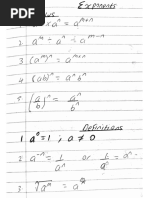 Exponents
1. aᵐ × aⁿ = aᵐ⁺ⁿ
2. aᵐ ÷ aⁿ = aᵐ⁻ⁿ
3 (aᵐ)ⁿ = aᵐˣⁿ
4 (ab)ⁿ = aⁿbⁿ
5 (a/b)ⁿ = aⁿ/bⁿ
Definitions
1 a⁰ = 1 , a ≠ 0
2 a⁻ⁿ = 1/aⁿ or 1/a⁻ⁿ = aⁿ